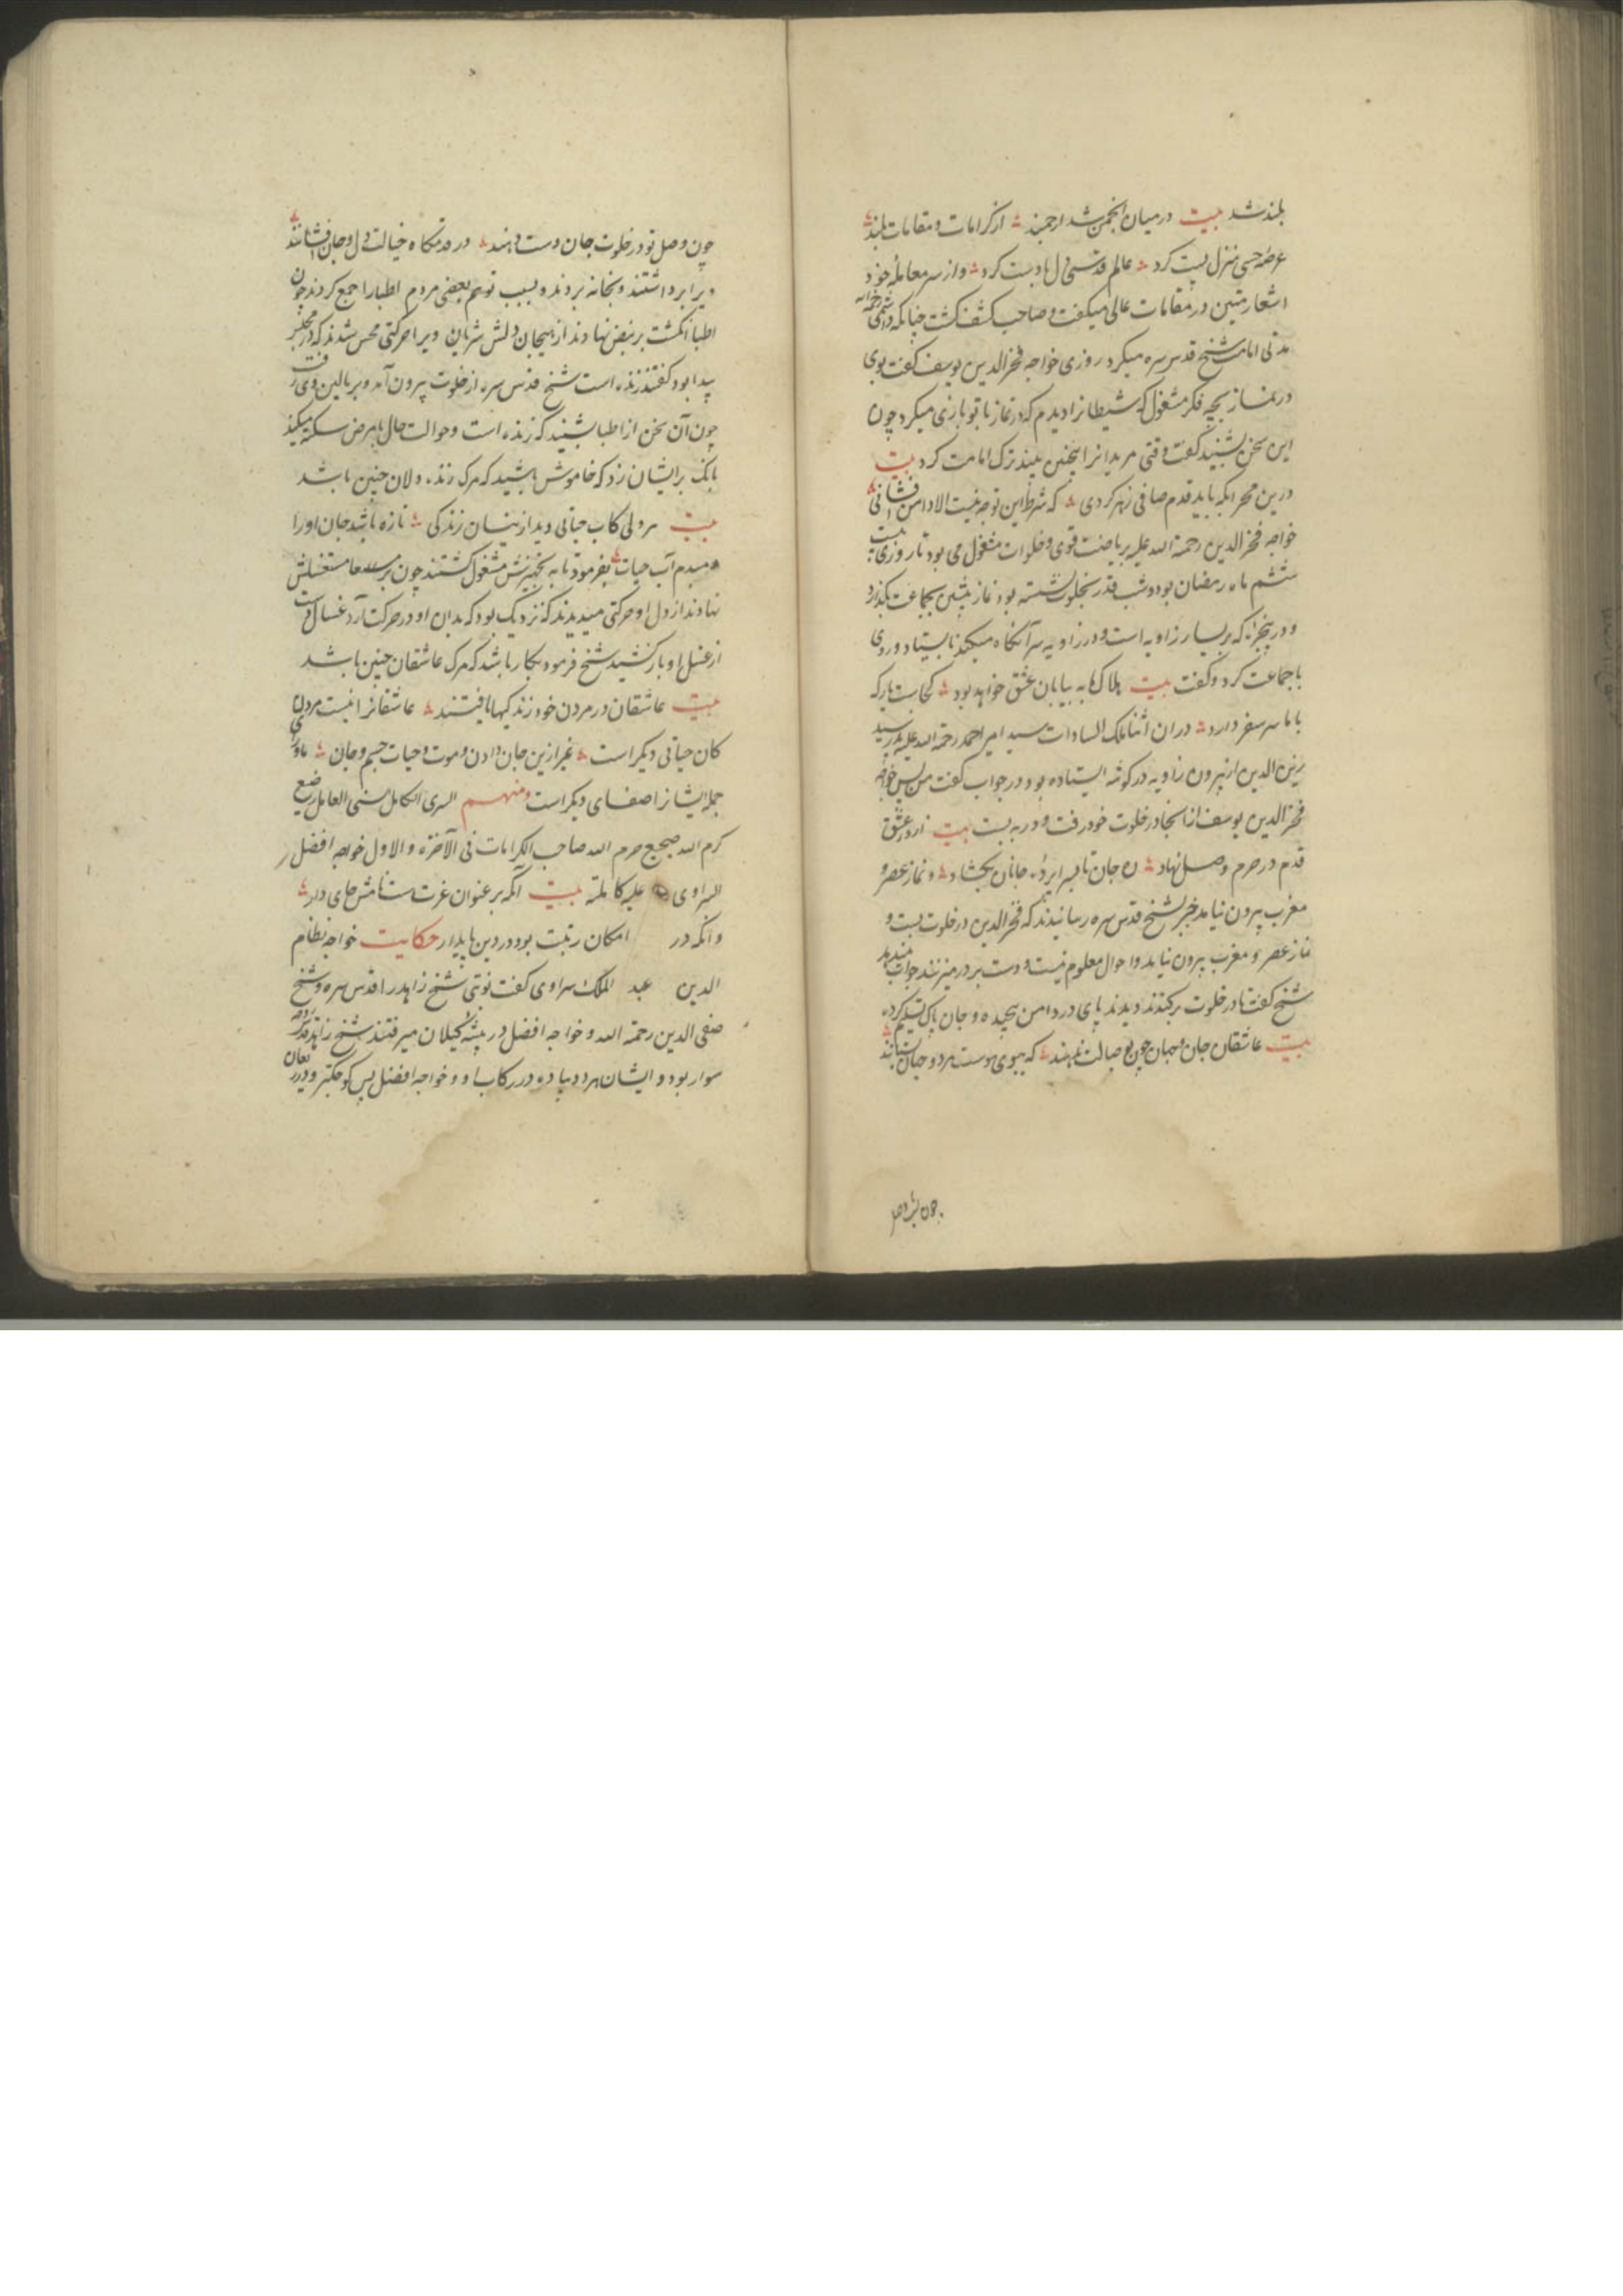 بلند شد بیت در میان انجمن شد ارجمند از کرامات و مقامات بلند
عرصه حسی منزل پست کرد عالم قدسی دل بادست کرد و از سر معامله خود
اشعار متین در مقامات عالی میکفت و صاحب کشف کشت چنانکه
مدتی امامت شیخ قدس سره میکرد روزی خواجه فخر الدین یوسف کفت بوی
در نماز بچه فکر مشغول که شیطانرا دیدم که در نماز با تو بازی میکرد چون
این سخن بشنید کفت وقتی مریدانرا اینچنین بیند ترک امامت کرد بیت
درین محر انکه باید قدم صافی زهر کردی که شرط این توجه نیست الا دامن افشانی
خواجه فخر الدین رحمة الله علیه بریاضت قوی و خلوات مشغول می بود تا روزی بیست
ششم ماه رمضان بود و شب قدر بخلوت نشسته بود نماز پیشین بجماعت بکذارد
و در پنجرۀ که بر یسار زاویه است و در زاویه سر آنکاه میکند بایستاد و روی
با جماعت کرد و کفت بیت هلاک ما به بیابان عشق خواهد بود کجاست یار که
با ما سر سفر دارد در ان اثنا ملک السادات سید امیر احمد رحمة الله علیه پدر سید
زین الدین از بیرون زاویه در کوشه ایستاده بود در جواب کفت من پس خواجه
فخر الدین یوسف از انجا در خلوت خود رفت و در به بست بیت از در عشق
قدم در حرم وصل نهاد جان تا بسراپردۀ جانان بکشاد و نماز عصر و
مغرب بیرون نیامد خبر بشیخ قدس سره رسانیدند که فخر الدین در خلوت بست و
نماز عصر و مغرب بیرون نیامد و احوال معلوم نیست و دست بر در میزنند جواب نمیدهد
شیخ کفت تا در خلوت برکندند دیدند پای در دامن پیچیده و جان پاک تسلیم کرده
بیت عاشقان جان و جهان چون بوصالت بدهند که ببوی هوست هر دو جهان بستانند
چون وصل تو در خلوت جان دست دهند در قدمکاه خیالت دل و جان افشانند
ویرا برداشتند و بخانه بردند و بسبب توهم بعضی مردم اطبا را جمع کردند چون
اطبا انکشت بر نبض نهادند از هیجان دلش شریان ویرا حرکتی محس شدند که در
پیدا بود کفتند زنده است شیخ قدس سره از خلوت بیرون آمد و بر بالین وی رفت
چون آن سخن از اطبا شنید که زنده است و حوالت حال با مرض سکته میکنند
بانک بر ایشان زد که خاموش باشید که مرک زنده دلان چنین باشد
بیت هر دلی کاب حیاتی دید از ینسان زندکی تازه باشد جان او را
دمبدم آب حیات بفرمود تا به تجهیزش مشغول کشتند چون بر مغتسلش
نهادند از دل او حرکتی میدیدند که نزدیک بود که بدان او در حرکت آرد غسال دست
از غسل او باز کشید شیخ فرمود بکار باشد که مرک عاشقان چنین باشد
بیت عاشقان در مردن خود زندکیها یافتند عاشقانرا نیست مردن
کان حیاتی دیکر است غیر ازین جان دادن و موت و حیات جسم و جان ماورای
جمله ایشانرا صفای دیکر است ومنهم السری الکامل السنی العامل رضیع
کرم الله ضجیع حرم الله صاحب الکرامات فی الآخرة والاول خواجه افضل
السراوی علیه کاملة بیت آنکه بر عنوان عزت هست نامش جای دار
وانکه در امکان رتبت بود در دین پایدار حکایت خواجه نظام
الدین عبد الملک سراوی کفت نوبتی شیخ زاهد را قدس سره و شیخ
صفی الدین رحمة الله و خواجه افضل در بیشه کیلان میرفتند شیخ زاهد قدس روحه
سوار بود و ایشان هر دو پیاده در رکاب او و خواجه افضل پس
چون وصل